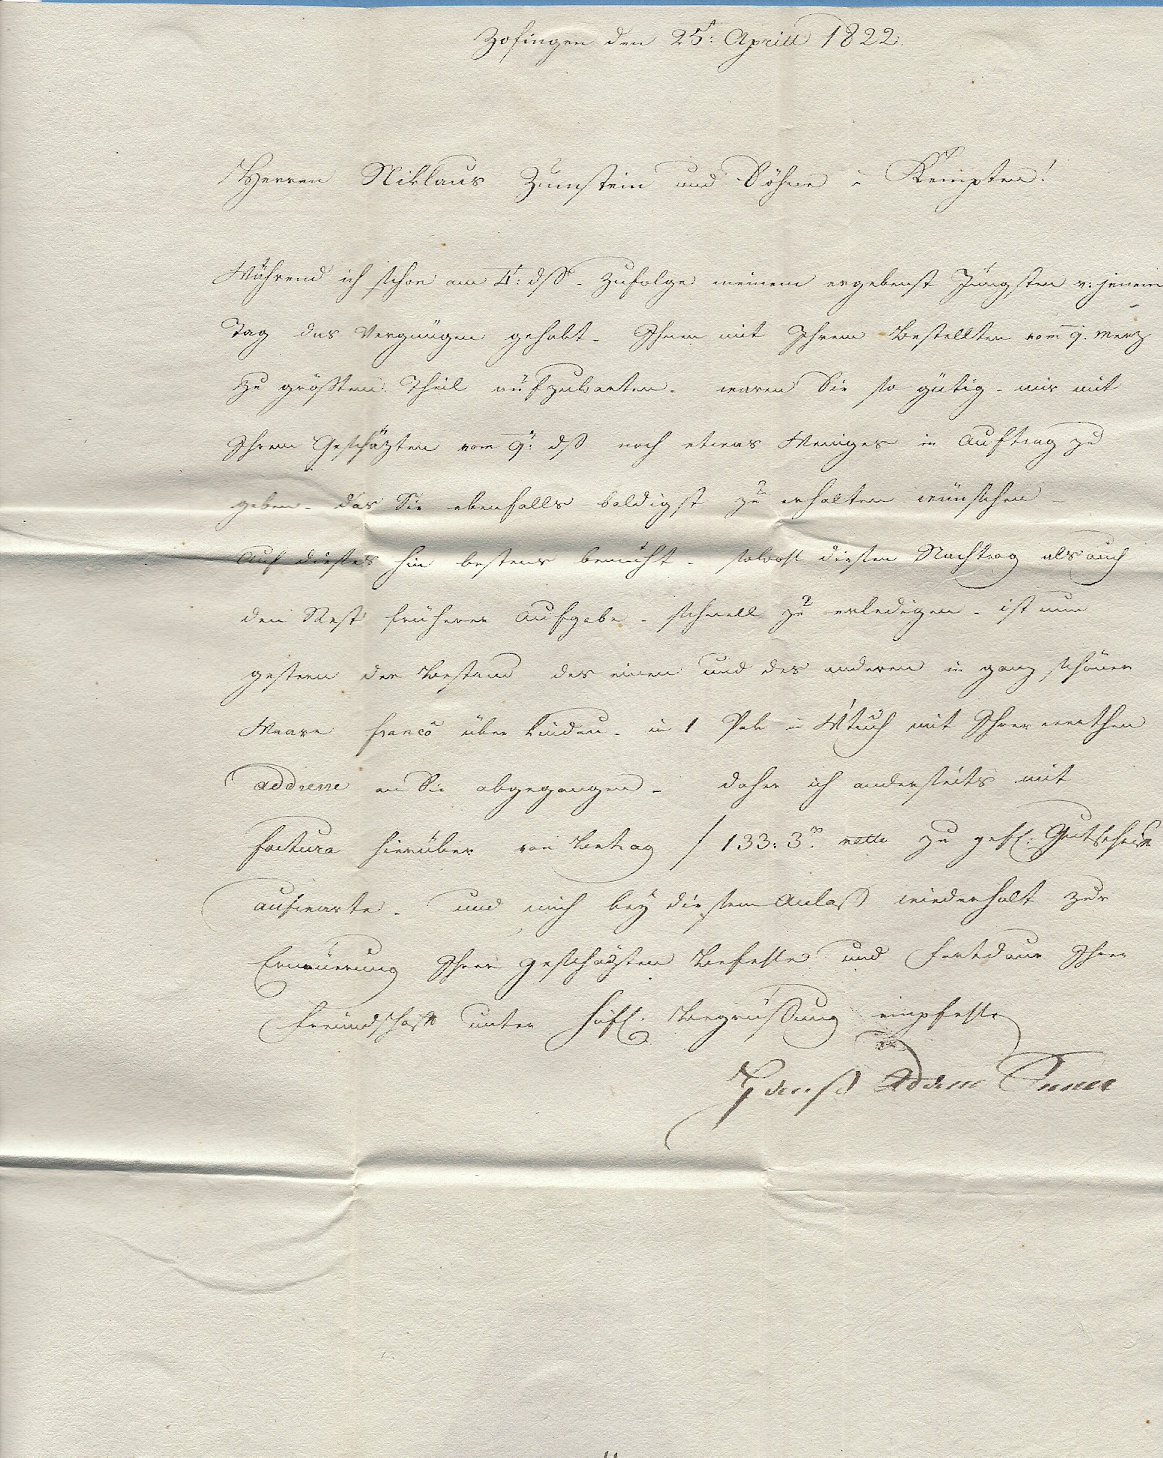 Zofingen den 25t: Aprill 1822.
Herren Niklaus Zumstein und Söhne in Kempten!
Während ich schon am 4t: dß. zufolge meinem ergebenst Jüngsten v: jenem
Tag das Vergnügen gehabt. Ihnen mit Ihrem Bestellten vom 9. Merz
zu größten Theil aufzuwarten. waren Sie so gütig. mir mit
Ihrem Geschäzten vom 9t: dß noch etwas Weniges in Auftrag zu
geben. das Sie ebenfalls baldigst zu erhalten wünschen
Auf dieses hin bestens bemüht. sowohl diesen Nachtrag als auch
den Rest früherer Aufgabe. schnell zu erledigen. ist nun
gestern der Bestand des einen und des anderen in ganz schöner
Waare franco über Lindau. in 1 Pak in W'tuch mit Ihrer werthen
Addresse an Sie abgegangen. daher ich anderseits mit
Factura hierüber von Betrag f 133: 3 xr. netto zu gefl: Gutschrift
aufwarte. und mich bey diesem Anlaß wiederholt zur
Erneuerung Ihrer geschäzten Befehle und Fortdaur Ihrer
Freundschaft unter höfl: Begrüßung empfehle
Adam